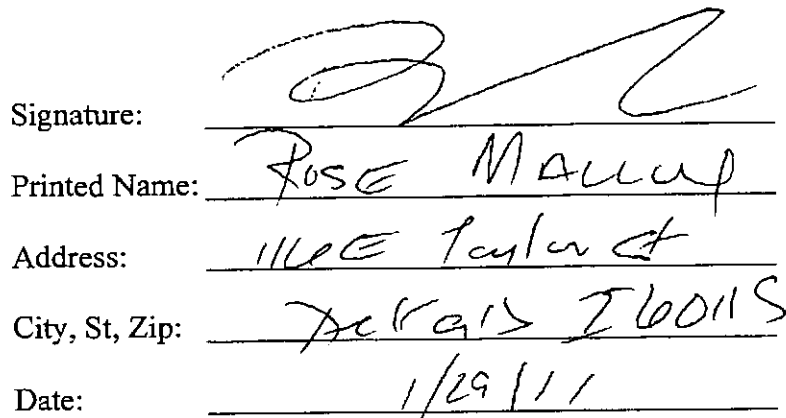 Signature:
Printed Name: ROSE
Address: Taylor
City, St, Zip: DeKalb I 60115
Date: 1/29/11